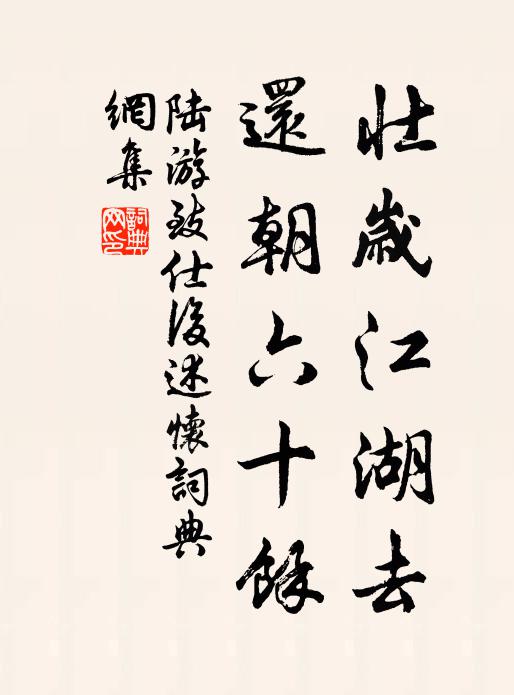 壯歲江湖去
還朝六十餘
陸游致仕後述懷詞典
網集
詞典
网印